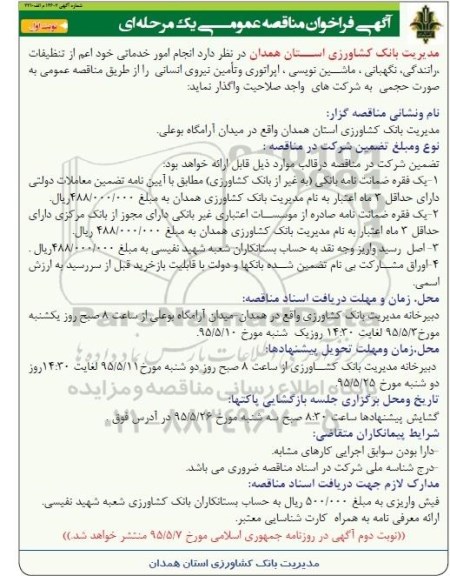 آگهی فراخوان مناقصه عمومی یک مرحله‌ای
نوبت اول
مدیریت بانک کشاورزی استان همدان در نظر دارد انجام امور خدماتی خود اعم از تنظیفات
،رانندگی، نگهبانی ، ماشین نویسی ، اپراتوری وتأمین نیروی انسانی را از طریق مناقصه عمومی به
صورت حجمی به شرکت های واجد صلاحیت واگذار نماید:
نام ونشانی مناقصه گزار:
مدیریت بانک کشاورزی استان همدان واقع در میدان آرامگاه بوعلی.
نوع ومبلغ تضمین شرکت در مناقصه :
تضمین شرکت در مناقصه درقالب موارد ذیل قابل ارائه خواهد بود:
۱-یک فقره ضمانت نامه بانکی (به غیر از بانک کشاورزی) مطابق با آیین نامه تضمین معاملات دولتی
دارای حداقل ۳ ماه اعتبار به نام مدیریت بانک کشاورزی همدان به مبلغ ۴۸۸/۰۰۰/۰۰۰ریال.
۲-یک فقره ضمانت نامه صادره از موسسات اعتباری غیر بانکی دارای مجوز از بانک مرکزی دارای
حداقل ۳ ماه اعتبار به نام مدیریت بانک کشاورزی همدان به مبلغ ۴۸۸/۰۰۰/۰۰۰ ریال.
۳-اصل رسید واریز وجه نقد به حساب بستانکاران شعبه شهید نفیسی به مبلغ ۴۸۸/۰۰۰/۰۰۰ریال .
۴-اوراق مشارکت بی نام تضمین شده بانکها و دولت با قابلیت بازخرید قبل از سررسید به ارزش
اسمی.
محل، زمان و مهلت دریافت اسناد مناقصه:
دبیرخانه مدیریت بانک کشاورزی واقع در همدان-میدان آرامگاه بوعلی از ساعت ۸ صبح روز یکشنبه
مورخ۹۵/۵/۳ لغایت ۱۴:۳۰ روزیک شنبه مورخ ۹۵/۵/۱۰.
محل،زمان ومهلت تحویل پیشنهادها:
دبیرخانه مدیریت بانک کشاورزی از ساعت ۸ صبح روز دو شنبه مورخ۹۵/۵/۱۱ لغایت ۱۴:۳۰روز
دو شنبه مورخ ۹۵/۵/۲۵
تاریخ ومحل برگزاری جلسه بازگشایی پاکتها:
گشایش پیشنهادها ساعت ۸:۳۰ صبح سه شنبه مورخ ۹۵/۵/۲۶ در آدرس فوق
شرایط پیمانکاران متقاضی:
-دارا بودن سوابق اجرایی کارهای مشابه.
-درج شناسه ملی شرکت در اسناد مناقصه ضروری می باشد.
مدارک لازم جهت دریافت اسناد مناقصه:
فیش واریزی به مبلغ ۵۰۰/۰۰۰ ریال به حساب بستانکاران بانک کشاورزی شعبه شهید نفیسی.
ارائه معرفی نامه به همراه کارت شناسایی معتبر.
((نوبت دوم آگهی در روزنامه جمهوری اسلامی مورخ ۹۵/۵/۷ منتشر خواهد شد.))
مدیریت بانک کشاورزی استان همدان